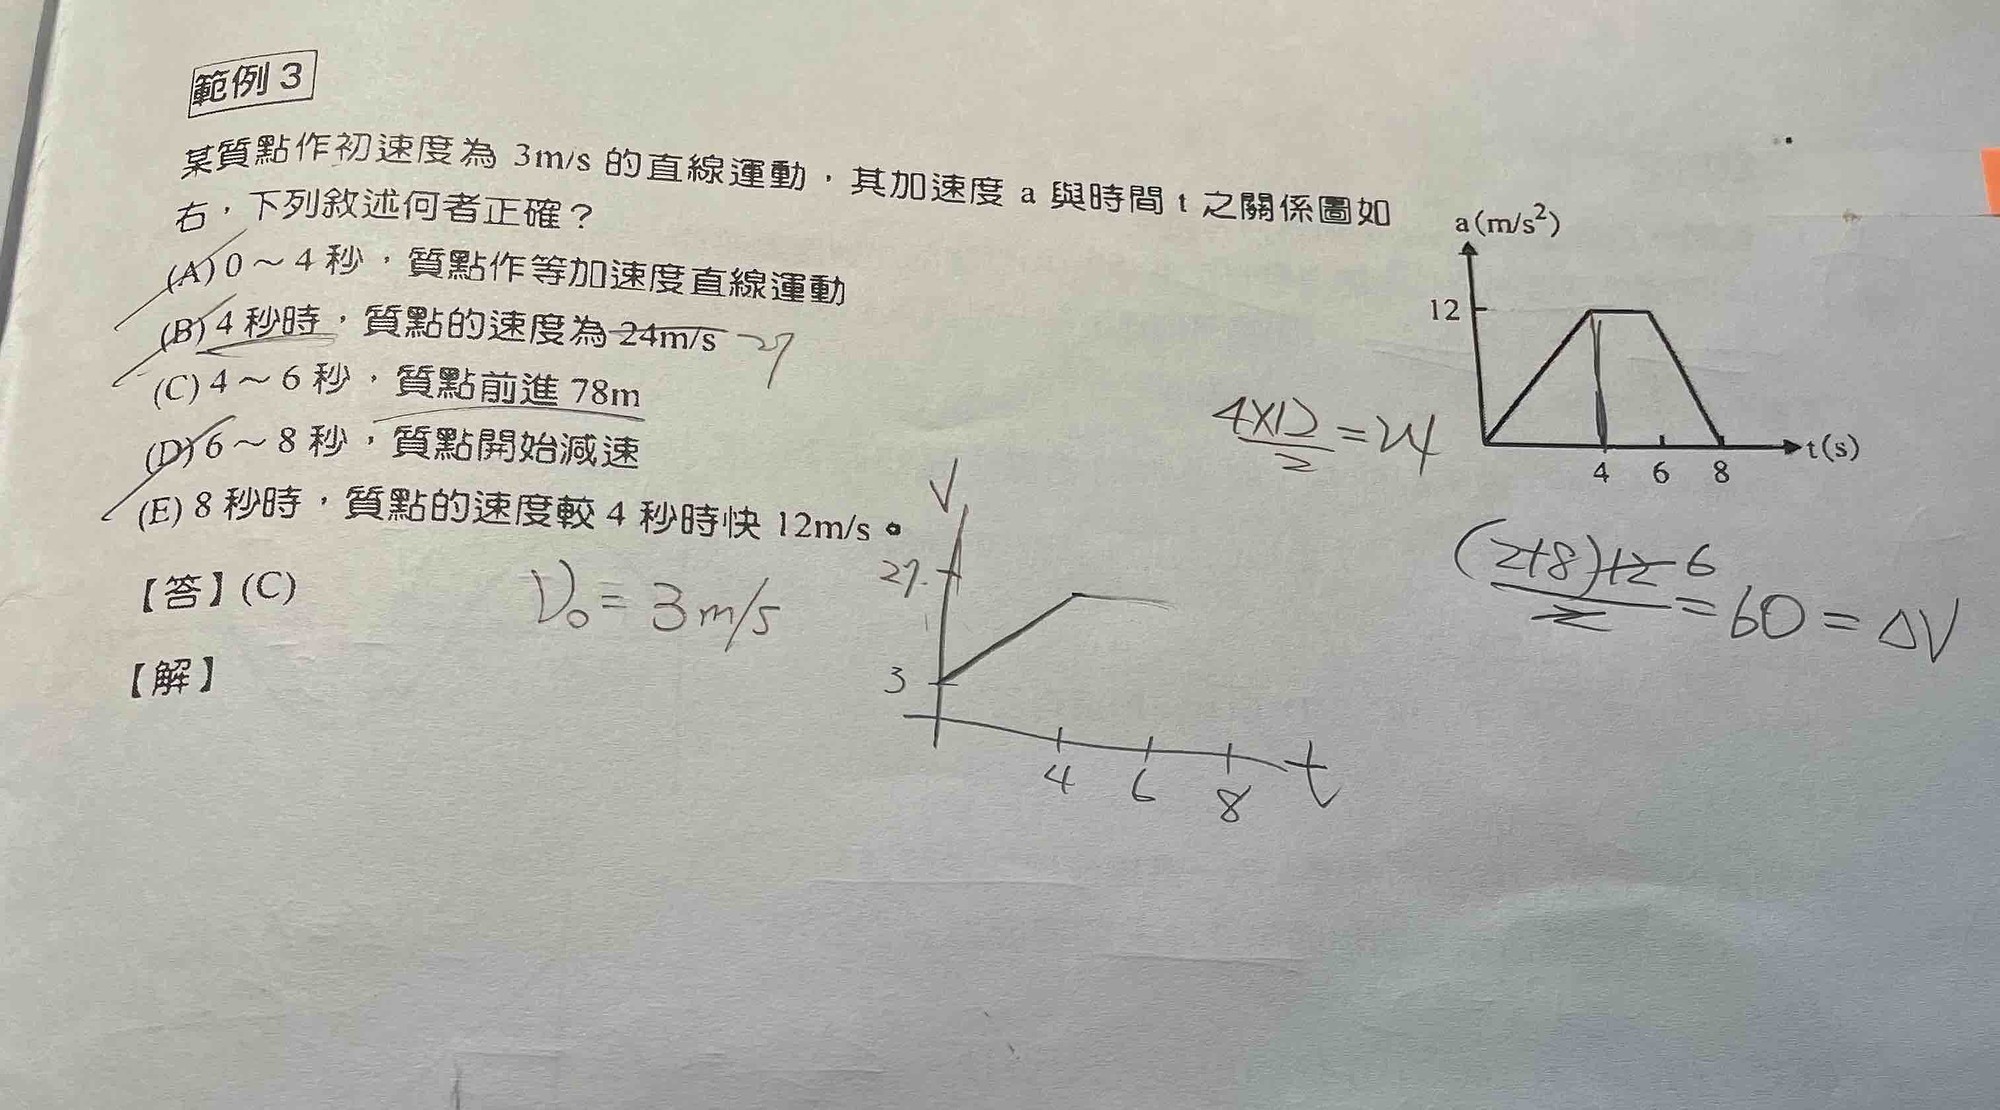 範例 3
某質點作初速度為 3m/s 的直線運動，其加速度 a 與時間 t 之關係圖如
右，下列敘述何者正確？
(A) 0～4 秒，質點作等加速度直線運動
(B) 4 秒時，質點的速度為 24m/s 27
(C) 4～6 秒，質點前進 78m
(D) 6～8 秒，質點開始減速
(E) 8 秒時，質點的速度較 4 秒時快 12m/s。
【答】(C)
【解】
a(m/s²)
12
4 6 8 t(s)
4×12/2 = 24
(2+8)12 6/2 = 60 = ΔV
V₀ = 3m/s
V
27
3
4 6 8 t